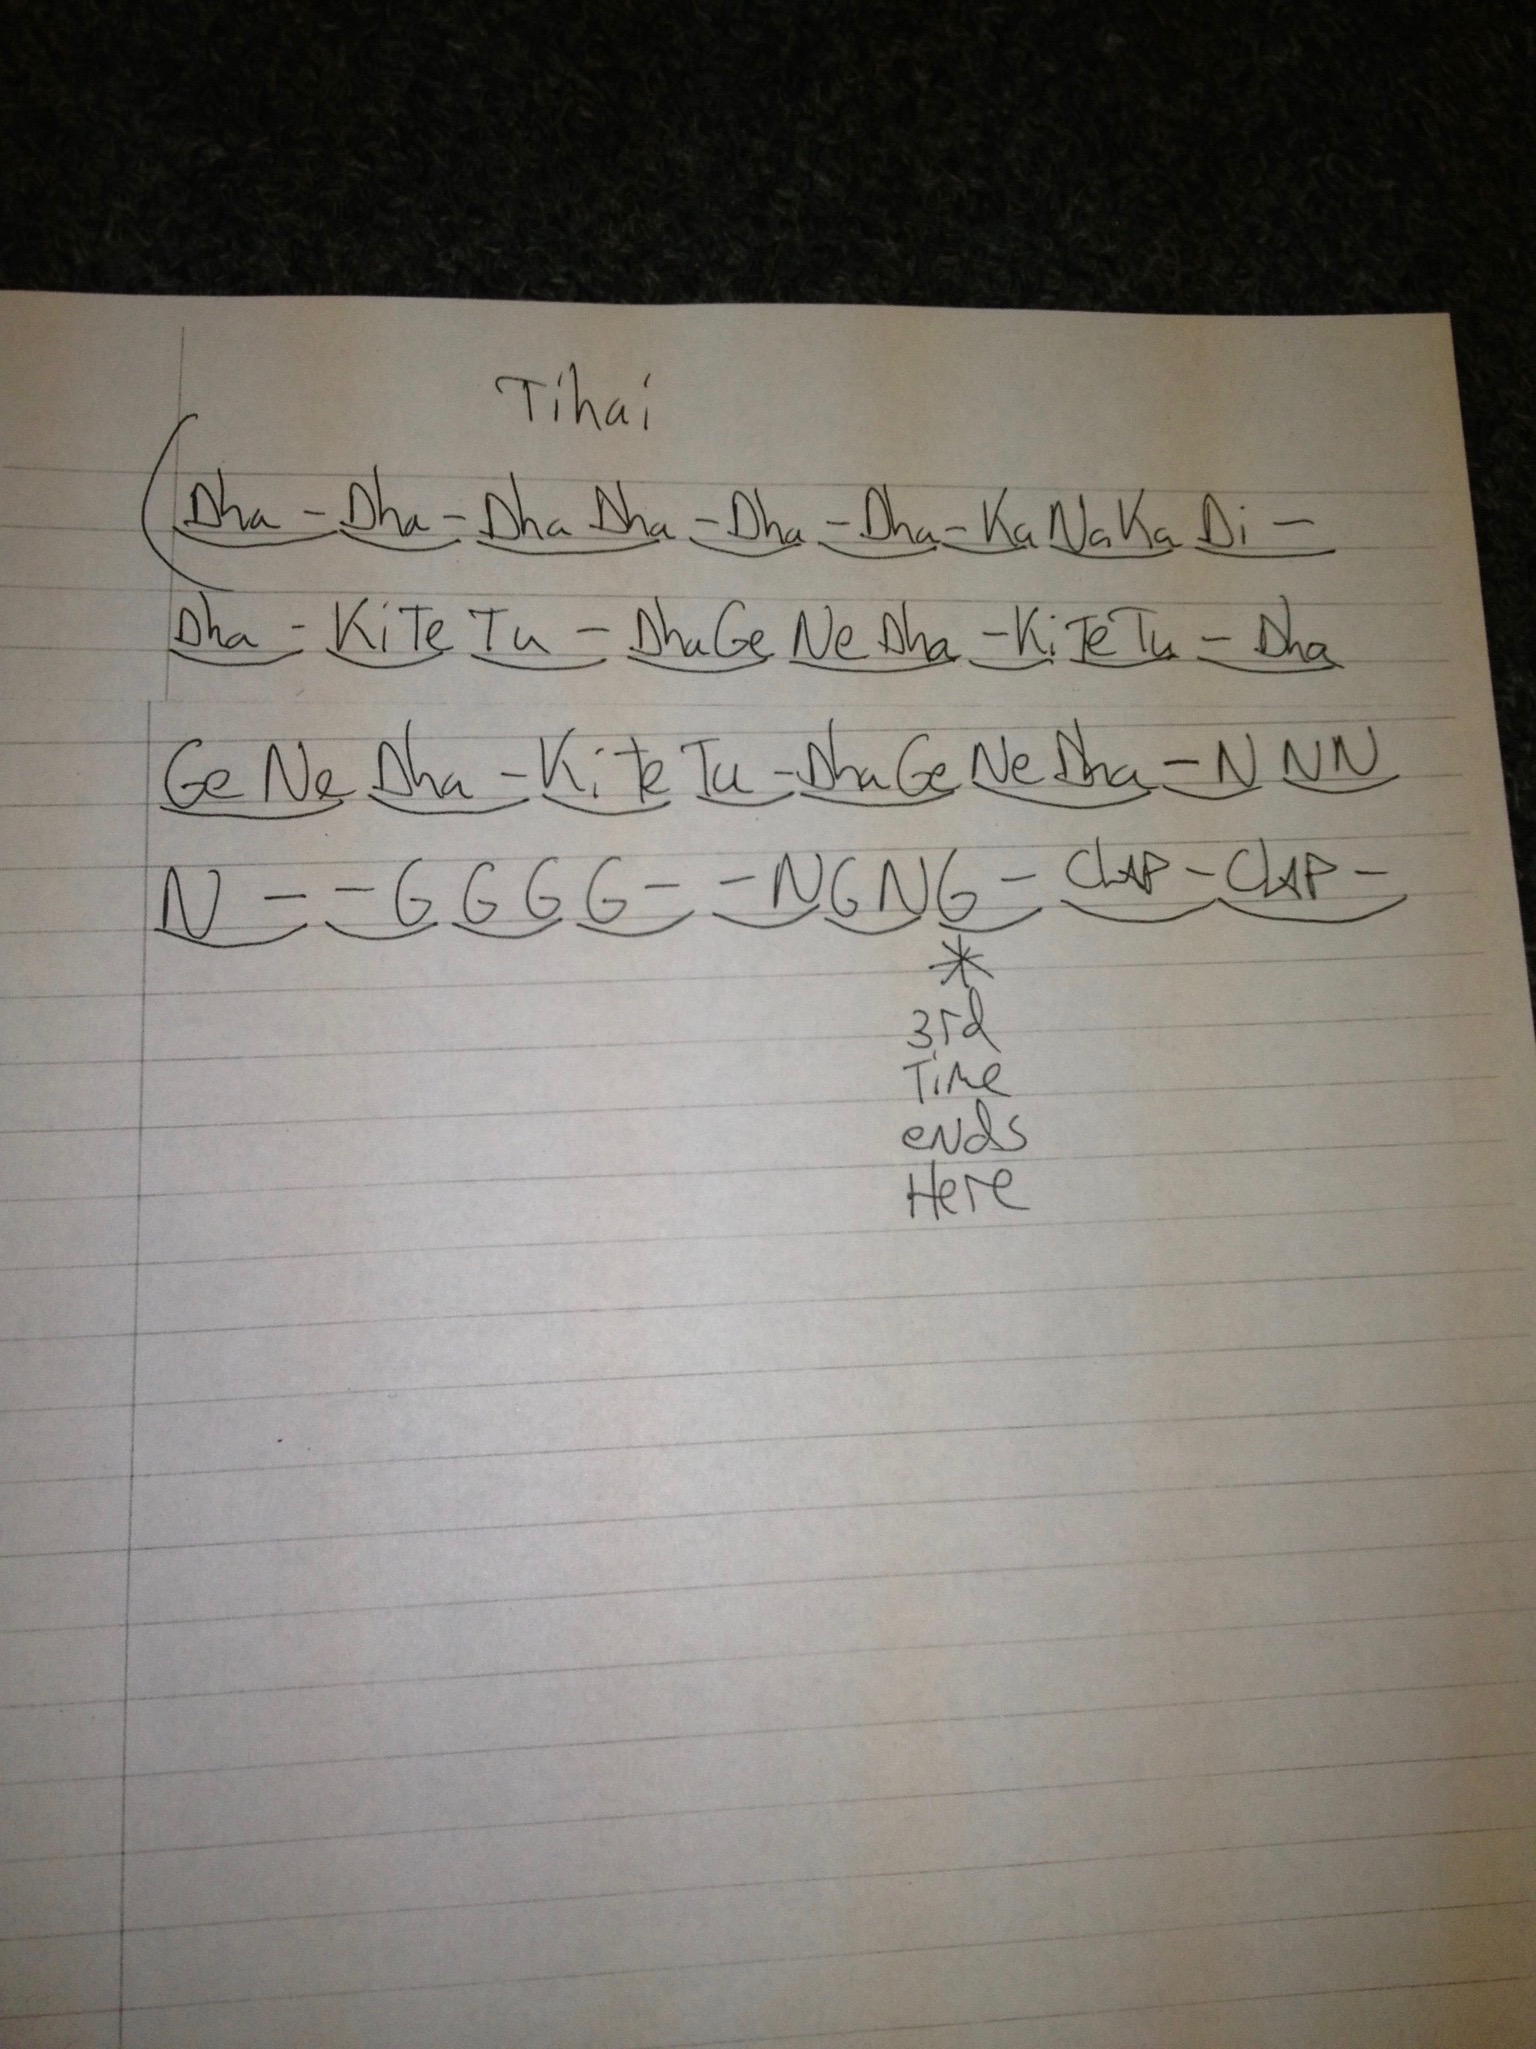 Tihai
(Dha - Dha - Dha Dha - Dha - Dha - Ka Na Ka Di -
Dha - Ki Te Tu - Dha Ge Ne Dha - Ki Te Tu - Dha
Ge Ne Dha - Ki Te Tu - Dha Ge Ne Dha - N N N
N - - G G G G - - N G N G - CLAP - CLAP -
*
3rd
Time
ends
Here